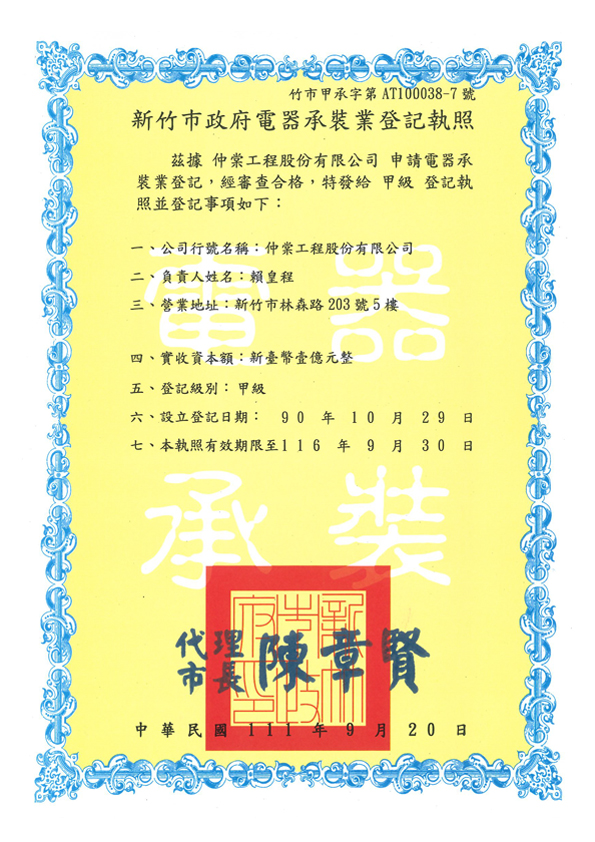 竹市甲承字第 AT100038-7 號
新竹市政府電器承裝業登記執照
茲據 仲棠工程股份有限公司 申請電器承
裝業登記，經審查合格，特發給 甲級 登記執
照並登記事項如下：
一、公司行號名稱：仲棠工程股份有限公司
二、負責人姓名：賴皇程
三、營業地址：新竹市林森路 203 號 5 樓
四、實收資本額：新臺幣壹億元整
五、登記級別： 甲級
六、設立登記日期： 90 年 10 月 29 日
七、本執照有效期限至116 年 9 月 30 日
電器
承裝
新竹市政府印
代理
市長 陳章賢
中華民國 111 年 9 月 20 日